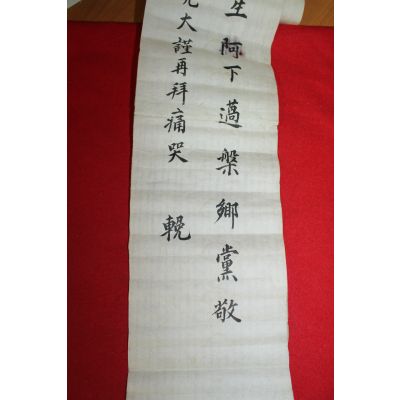 生阿下薖槃鄉黨敬
大謹再拜痛哭 輓